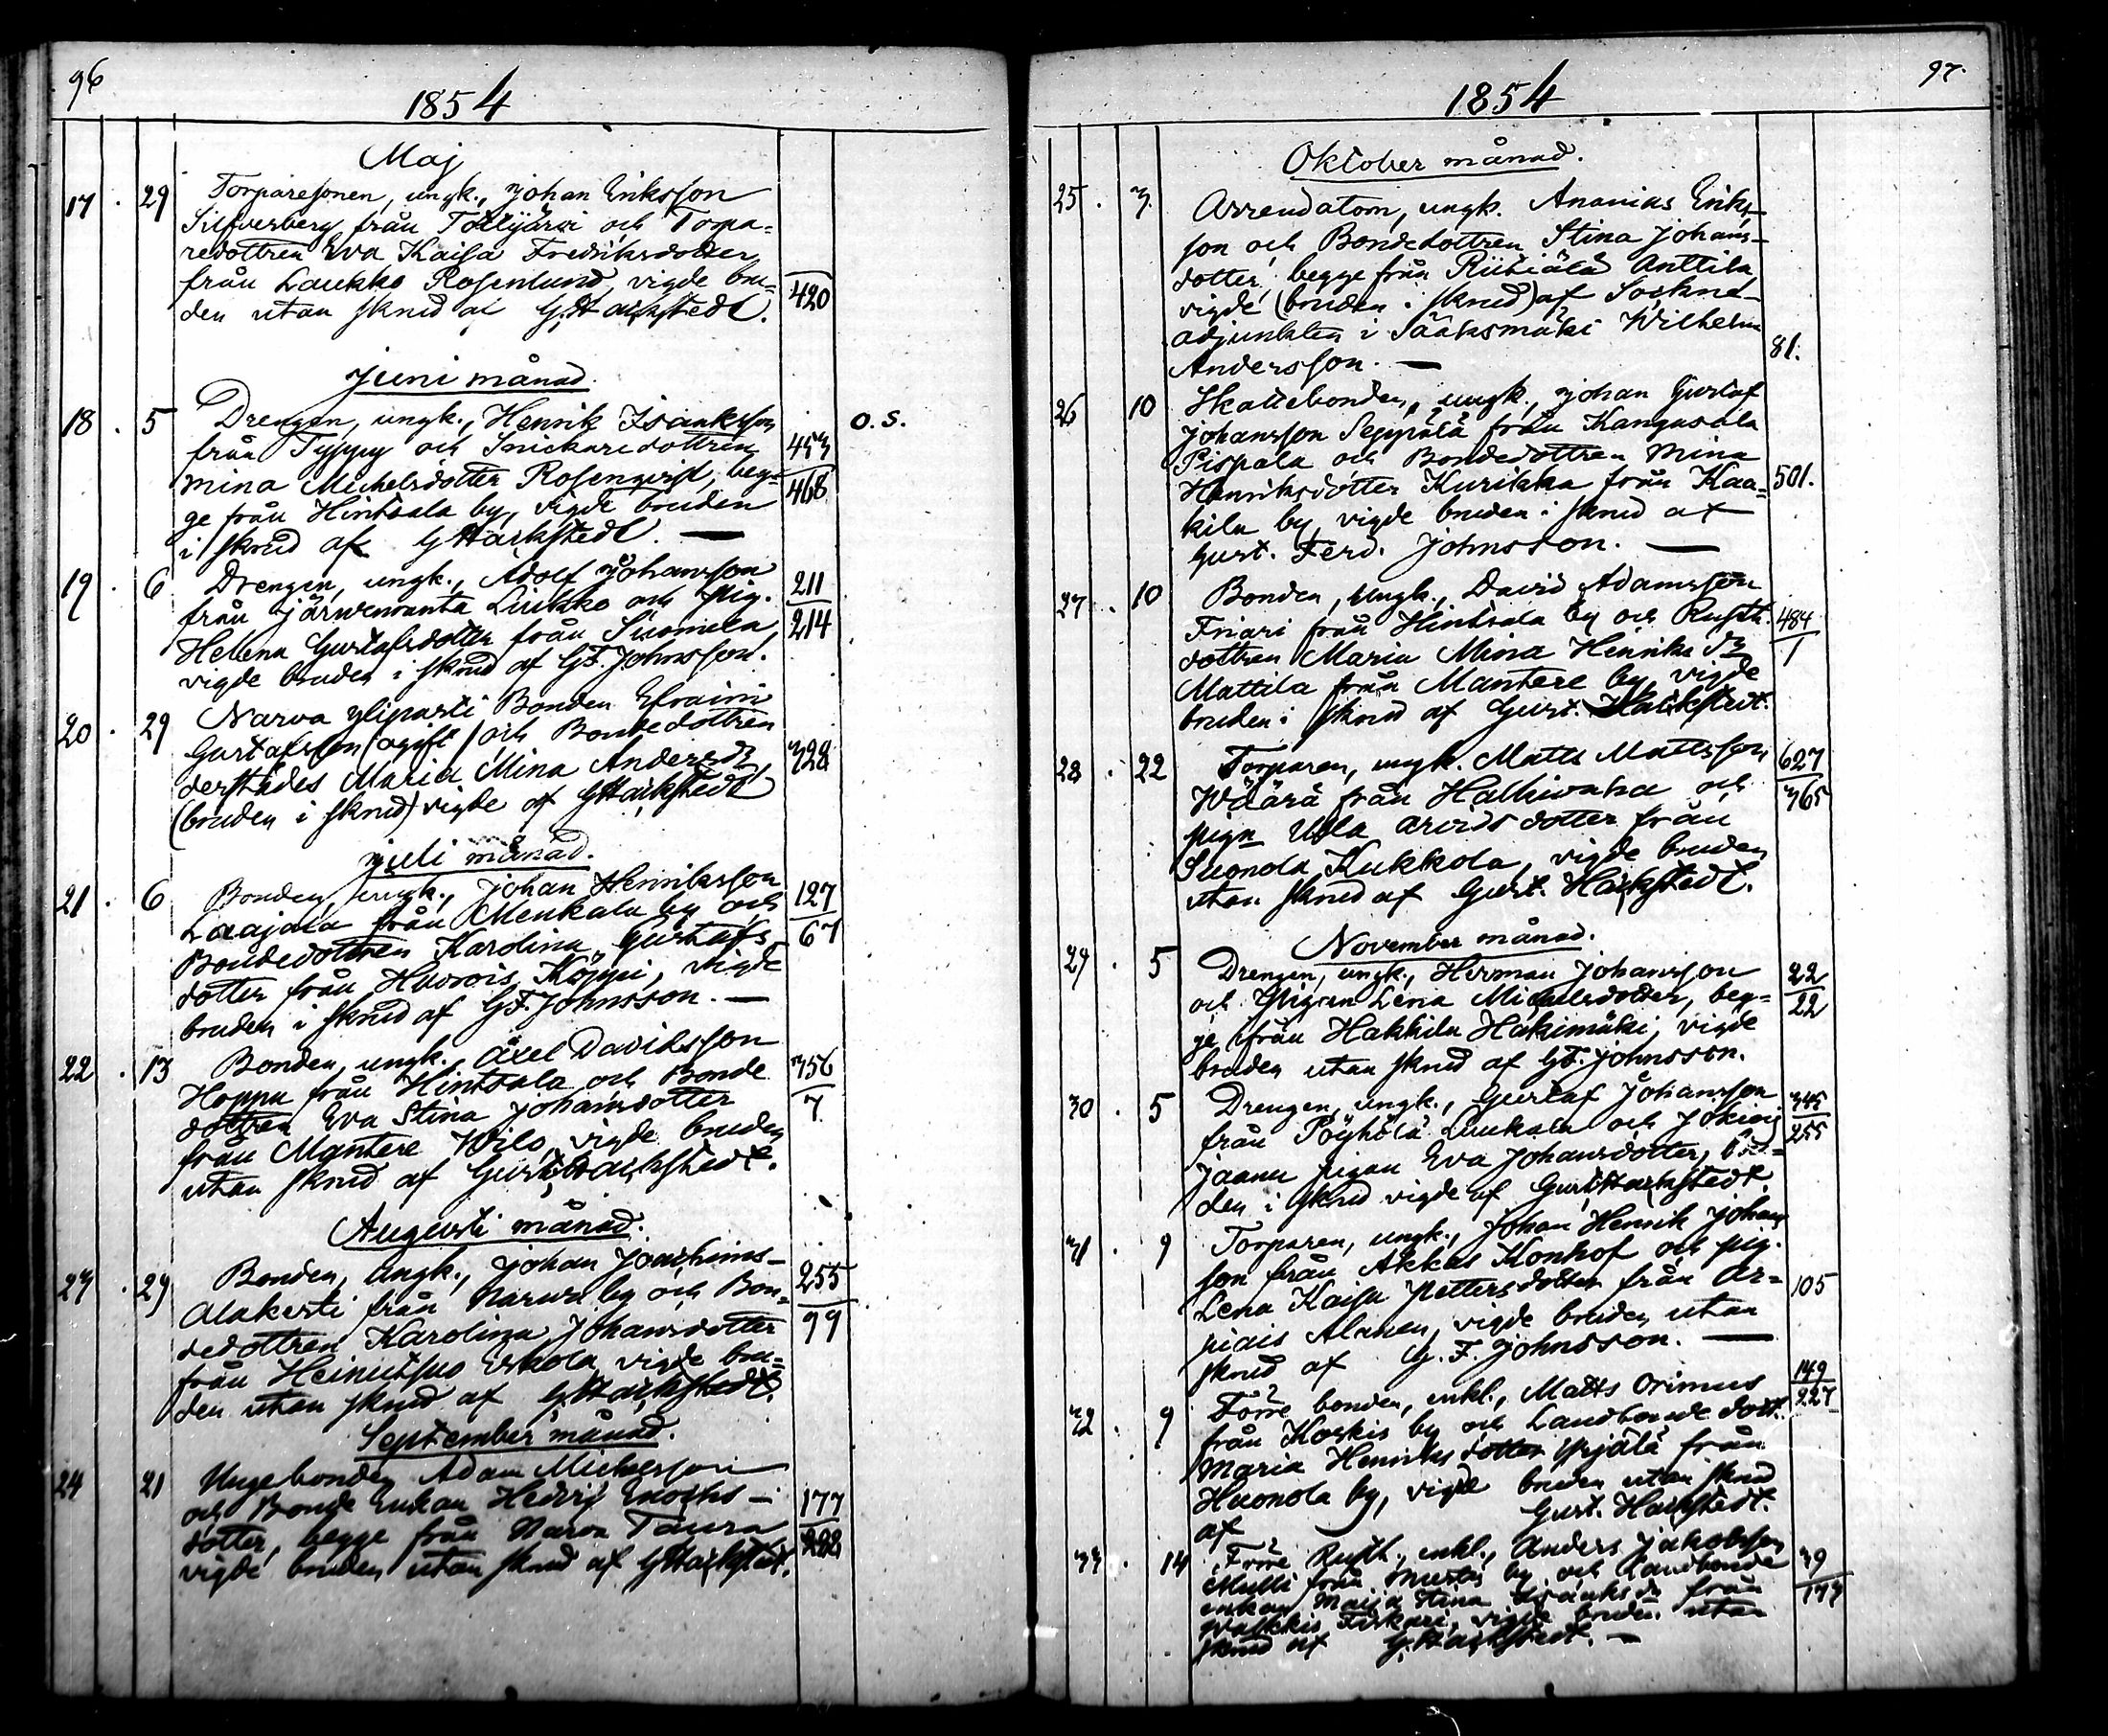 96
1854
Maj
17 . 29 Torparesonen, ungk., Johan Eriksson
Silfverberg från Tottijärvi och Torpa=
redottren Eva Kaisa Fredriksdotter
från Laukko Rosenlund, vigde bru=
den utan skrud af G Hackstedt. 420
Juni månad.
18 . 5 Drengen, ungk., Henrik Isaksson o.s.
från Typpy och Snickaredottren 453
Mina Michelsdotter Rosenqvist, beg= 468
ge från Hintsala by, vigde bruden
i skrud af G Hackstedt. —
19 . 6 Drengen, ungk., Adolf Johansson 211
från Järvenranta Liukko och pig. 214
Helena Gustafsdotter från Suomela,
vigde bruden i skrud af G.F. Johnsson.
20 . 29 Narva Yliparti Bonden Efraim
Gustafsson (ogift) och Bondedottren
derstädes Maria Mina Andersdr, 328
(bruden i skrud) vigde af G Hackstedt
Juli månad.
21 . 6 Bonden, ungk., Johan Henriksson 127
Laajala från Menkala by och 67
Bondedottren Karolina Gustafs
dotter från Huovis Köppi, vigde
bruden i skrud af G.F. Johnsson. —
22 . 13 Bonden, ungk., Axel Davidsson 356
Hoppu från Hintsala och Bonde 7.
dottren Eva Stina Johansdotter
från Mantere Wilo, vigde bruden
utan skrud af Gust. Hackstedt.
Augusti månad.
23 . 29 Bonden, ungk., Johan Joachims- 255
Alakerti från Narva by och Bon= 99
dedottren Karolina Johansdotter
från Heinutsuo Erkola, vigde bru=
den utan skrud af G Hackstedt.
September månad.
24 21 Ungebonden Adam Michelsson
och Bonde Enkan Hedvig Enochs- 177
dotter, begge från Narva Taura 222
vigde bruden utan skrud af G Hackstedt.
97.
1854
Oktober månad.
25 . 3. Arrendatorn, ungk. Ananias Eriks-
son och Bondedottren Stina Johans-
dotter, begge från Ritiälä Anttila
vigde (bruden i skrud) af Sockne-
adjunkten i Sääksmäki Wilhelm
Andersson. — 81.
26 10 Skattebonden, ungk., Johan Gustaf
Johansson Seppälä från Kangasala
Pispala och Bondedottren Mina
Henriksdotter Kurikka från Kaa= 501.
kila by, vigde bruden i skrud af
Gust. Ferd. Johnsson. —
27 . 10 Bonden, ungk., David Adamsson
Friari från Hintsala by och Rusth. 484
dottren Maria Mina Henriks dr 1
Mattila från Mantere by, vigde
bruden i skrud af Gust. Hackstedt.
28 . 22 Torparen, ungk. Matts Mattsson 627
Wäärä från Halkivaha och 365
pigan Ulla Arvidsdotter från
Suonola Kukkola, vigde bruden
utan skrud af Gust. Hackstedt.
November månad.
29 . 5 Drengen, ungk., Herman Johansson 22
och Pigan Lena Michelsdotter, beg= 22
ge från Hakkila Hakimäki, vigde
bruden utan skrud af G.F. Johnsson.
30 . 5 Drengen, ungk., Gustaf Johansson 345
från Pöyhölä Luukala och Jokiois 255
Jaanu pigan Eva Johansdotter, bru=
den i skrud vigde af Gust Hackstedt.
31 . 9 Torparen, ungk., Johan Henrik Johans
son från Akkas Konhof och pig.
Lena Kaisa Pettersdotter från Ar= 105
piais Alanen, vigde bruden utan
skrud af G. F. Johnsson. —
32 . 9 Förre bonden, enkl., Matts Orimus 149
från Koskis by och Landbonde dott. 227
Maria Henriksdotter Yrjälä från
Huonola by, vigde bruden utan skrud
af Gust. Hackstedt.
33 . 14 Förre Rusth., enkl., Anders Jakobsson
Mulli från by och Landbonde 39
enkan Maija Stina Isaaks dr från 177
Walkkis Fiskari, vigde bruden utan
skrud af G. Hackstedt. —